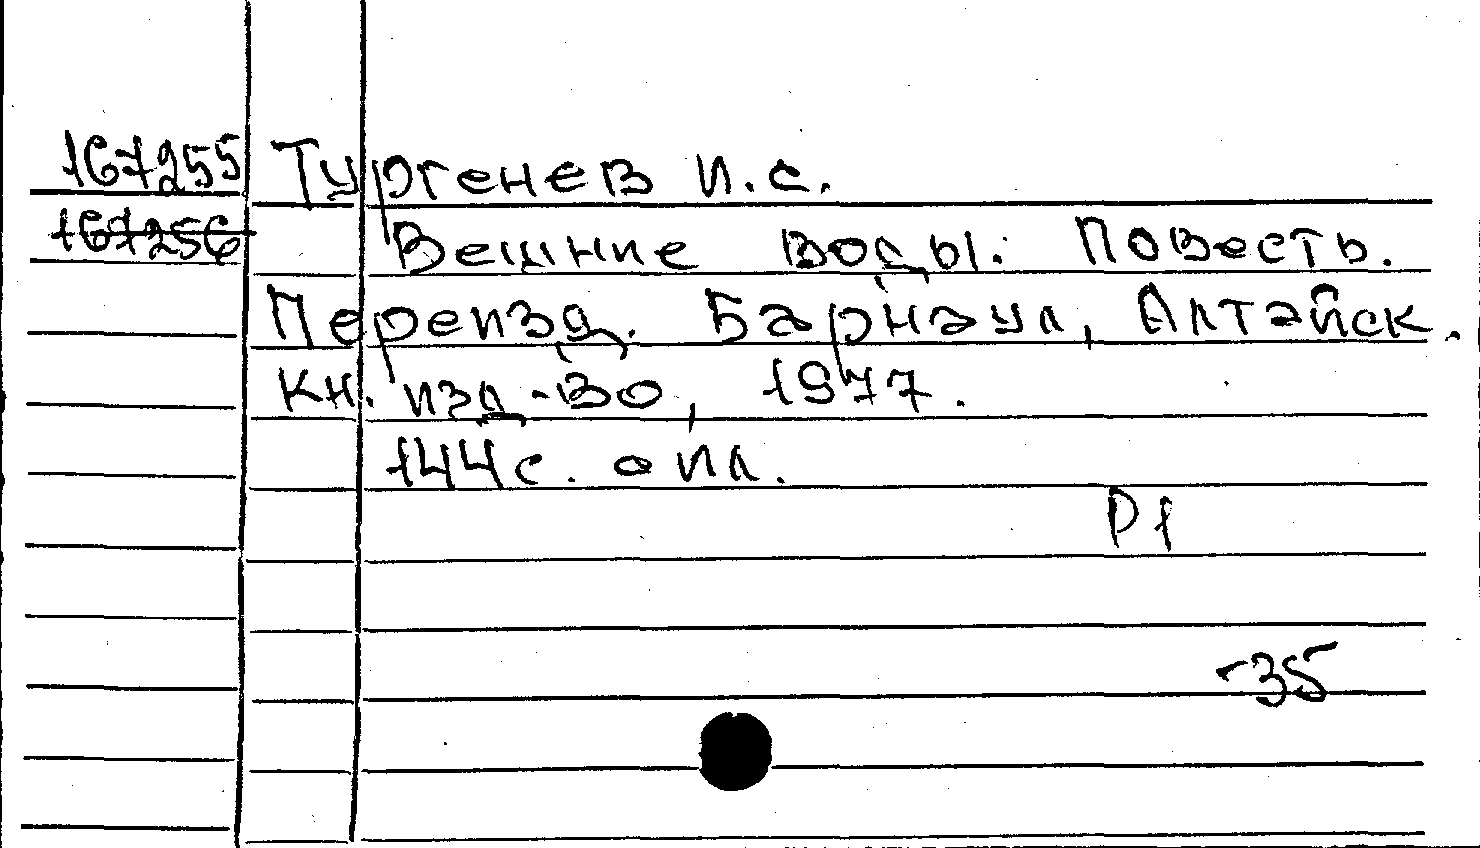 167255 Тургенев И.С.
167256 Вешние воды. Повесть.
Переизд. Барнаул, Алтайск.
кн. изд-во, 1977.
144с. с ил.
Р1
-35